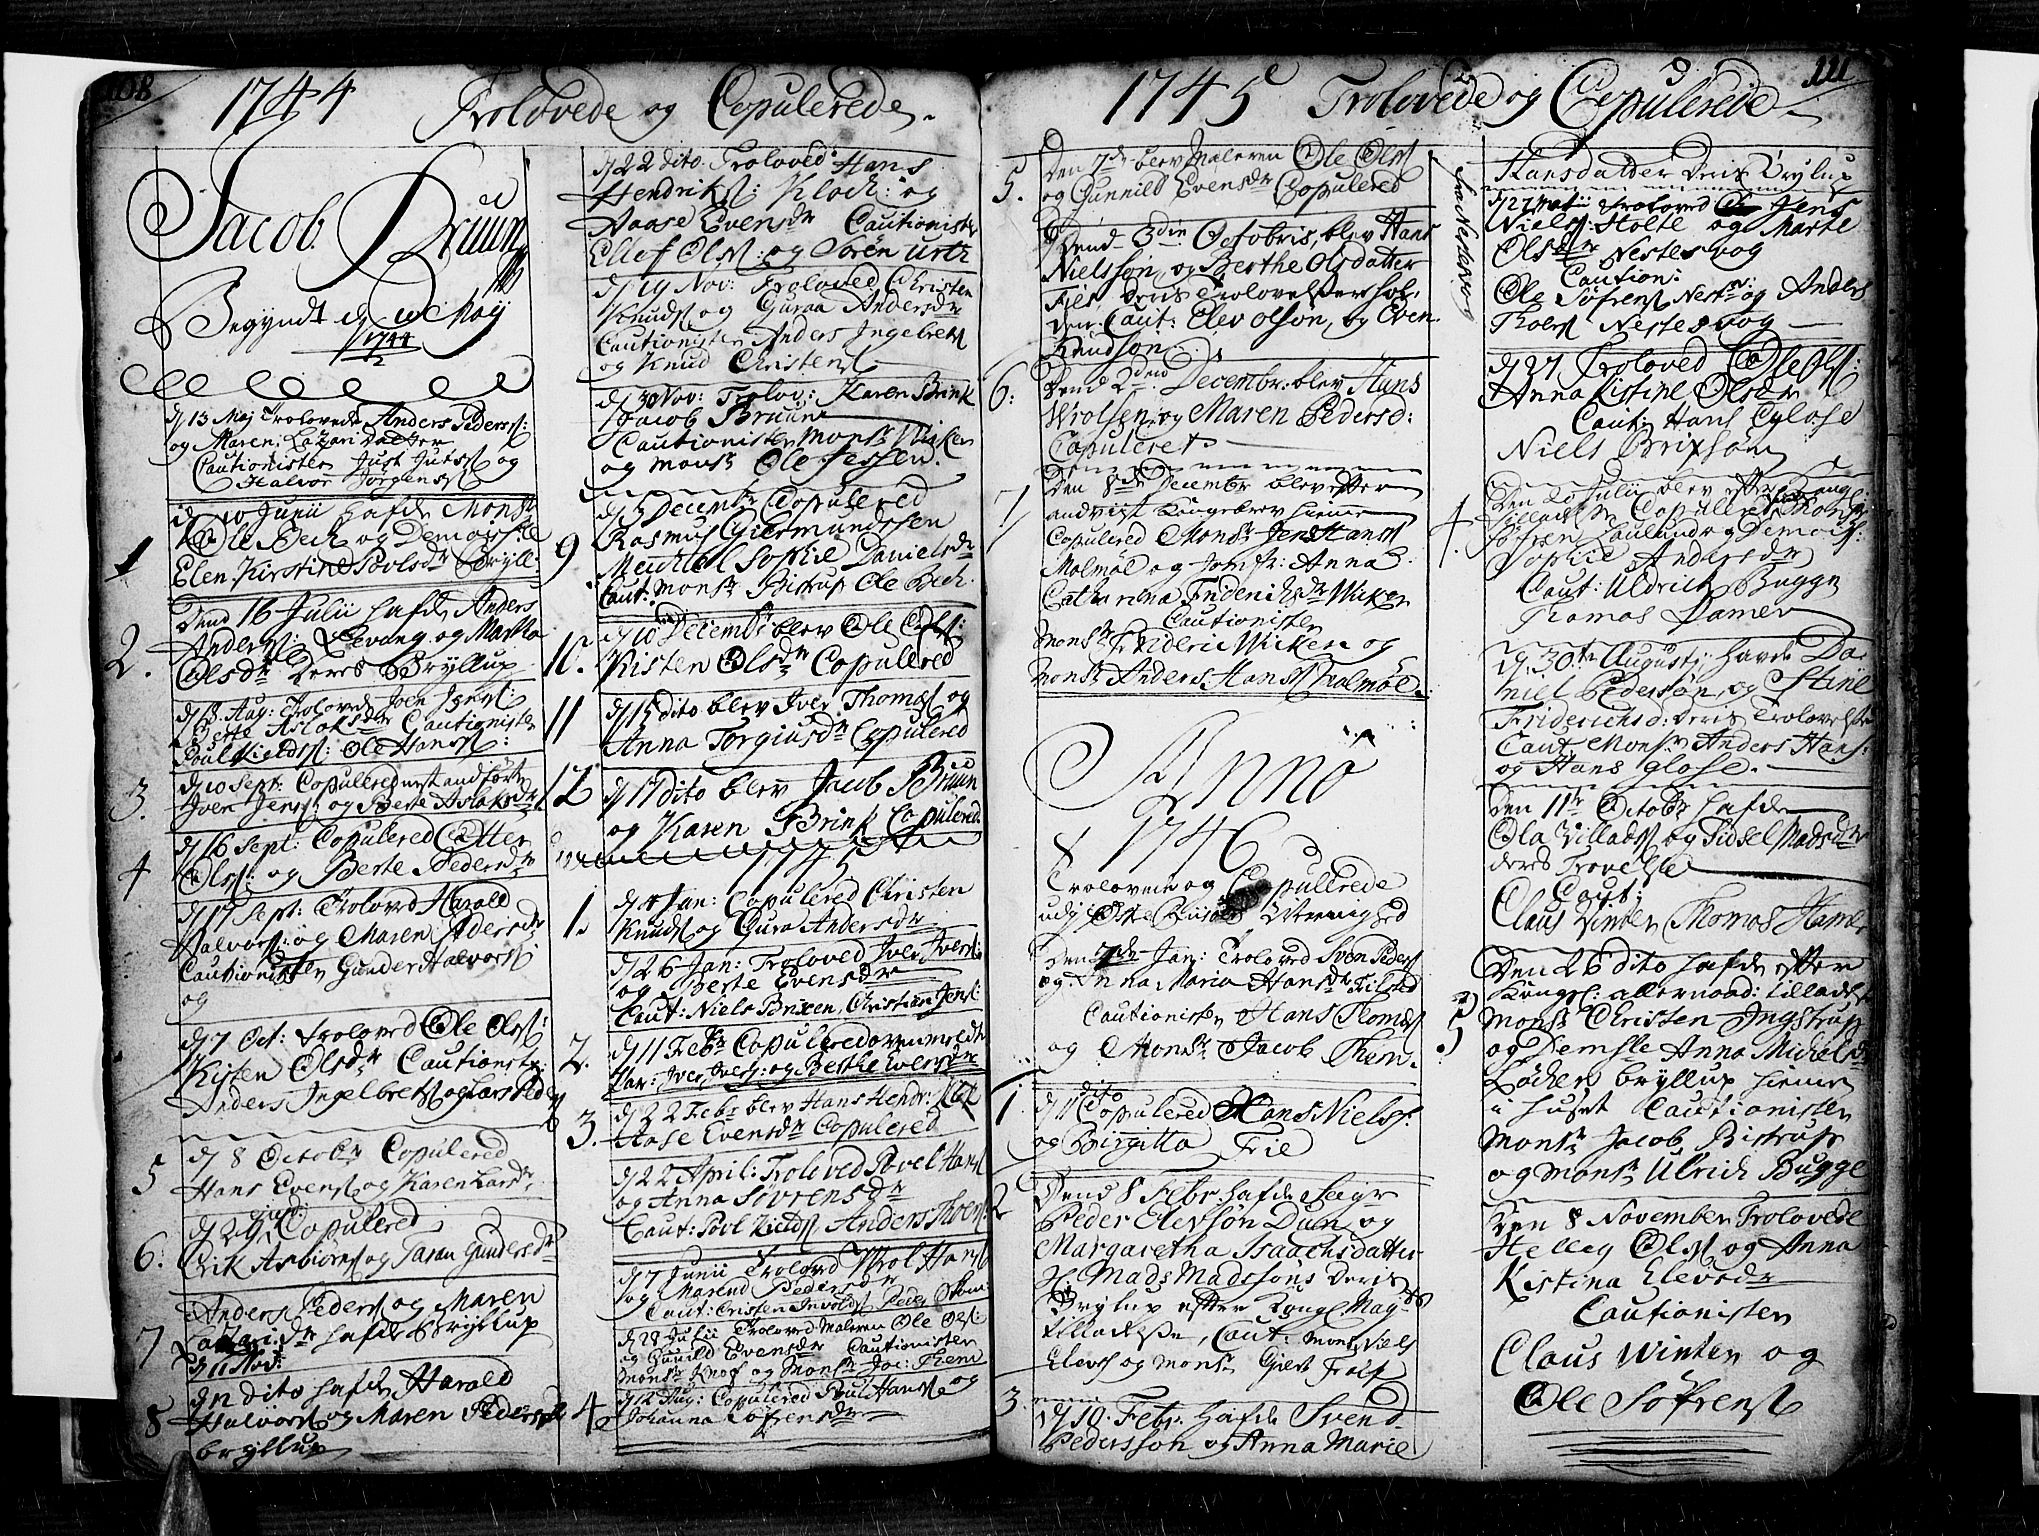 108
1744
Trolovede og Copulerede
Jacob Bruun
Begyndt d 10 Maij
1744
d 13 Maj Trolovede Anders Peders:
og Maren Lazari datter
Cautionister Just Juts og
Halvor Jørgens
d 10 Junii hafde Mons
1 Ole Bech og Demoiselle
Elen Kirstine Povlsdr Bryll:
Dend 16 Julii hafde Anders
2. Anders: Levang og Martha
Olsdr Deres Bryllup
d 18 Aug: Trolovede Joen Jens:
Berte Aslaksdr Cautionister
Poul Kields: Ole Hans:
d 10 Sept: Copulered nest anførte
3. Iver Jens og Berte Aslaksdr
d 16 Sept: Copulered Etter
4 Ols: og Berte Pedersdr
d 17 Sept: Troloved Harald
Halvors: og Maren Pedersdr
Cautionister Gunder Halvors:
og
d 7 Oct: Troloved Ole Ols:
Kisten Olsdr Cautionstr:
Anders Ingelbrets og Lars Peders
d 8 Octobr Copulered
5 Hans Evens og Karen Larsdr
d 29 Copulered
6. Erik Asbiørns og Taran Gundersdr
Anders Peders og Maren
7 Lazari dr hafde Bryllup
d 11 Nov:
d 12 dito hafde Harald
8 Halvors og Maren Pedersdr
bryllup
d 22 dito: Troloved Hans
Hendriks: Kloch: og
Aaase Evensdr Cautionister
Ellef Ols: og Søren Urtz
d 19 Nov: Troloved Christen
Knuds og Guraa Andersdr
Cautionister Anders Ingebrets
og Knud Christens
d 30 Nov: Trolov: Karen Brink
Jacob Bruun
Cautionister Monsr Wicken
og Monsr Ole Jessen.
d 5 Decembr Copulered
9 Rasmus Giermundssen
Meuthel Sophie Danielsdr
Caut: Monsr Bistrup Ole Bech.
d 10 Decembr blev Ole Ols:
10. Kisten Olsdr Copulered
11 d 15 dito blev Iver Thomas og
Anna Torgiusdr Copulered
12 d 17 dito blev Jacob Bruun
og Karen Brink Copulered
1745
1. d Jan: Copulered Christen
Knuds og Gura Andersdr
d 26 Jan: Troloved Iver Ivers:
og Berte Evensdr
Caut: Niels Brixen, Christian Jens:
2. d 11 Febr Copulered ovenmeldte
Par: Iver Ivers: og Berthe Evensdr
3. d 22 Febr blev Hans Hendr: Klok
Aase Evensdr Copulered
d 22 April: Troloved Povel Hans
og Anna Sørrensdr
Caut: Povl Kields, Anders Thors:
d 7 Junii Troloved Wrol Hans
og Marend Pedersdr
Caut: Cristen Peder
d 28 Julii Troloved Maleren Ole Ols:
og Gunild Evensdr Cautionister
Monsr Knof og Monsr Jac: Them
4 d 12 Aug: Copulered Poul Hans og
Johanna Søfrensdr
111
1745
Trolovede og Copulerede
Den 7de blev Maleren Ole Ols
5. og Gunnild Evensdr Copulered
Dend 3die Octobris, blev Hans
Nielssøn, og Berthe Olsdatter
Fiør, Deris Trolovelse hol-
den. Caut: Elev Olsøn, og Even
Knudsøn.
6. Dend 2den Decembr: blev Hans
Wrolsen og Maren Pedersd:
Copuleret
7 Den 8de Decembr blev efter
andvist Kongebrev hieme
Copulered Monsr Jens Hans
Malmøl og Jomfr: Anna
Catharina Friderichsdr Wicken
Cautionister
Monsr Frideric Wicken og
Monsr Anders Hans Malmøl.
Anno
1746
Trolovede og Copullerede
udj
Den 7de Jan: Troloved Sven Peders
og Anna Maria Hansdr
Cautionister Hans Thomas
og Monsr Jacob Them.
1 d 11 dito Copulered Hans Niels:
og Birgitta Frie
2 Dend 8 Febr hafde Sagr
Peder Elevsøn Dun, og
Margaretha Isaachsdatter
H: Mads Madssøns Deris
Brylup efter Kongl Mag:
tilladelse, Caut: Mons Niels
Elevs og Monsr Giert Falk
3. d 10. Febr: hafde Svend
Pedersson og Anna Marie
Hansdatter Deris Brylup
Fra Nestesvog
d 27 Maii Troloved Jens
Niels: Holte og Marte
Olsdr Nestesvog
Caution:
Ole Søfrens Nest: og Anders
Thors Nestesvog
d 27 Troloved Ole Ols:
Anna Kistine Olsdr
Caut: Hans Glose
Niels Brixson
Den 20 Julii blev efter Kongl:
4. tilladelse Copulered
Søfren Haulund og Demois:
Sophie Andersdr
Caut: Uldrich Bugge
Thomas Damer
d. 30te Augustj havde Da-
niel Pederssøn, og Stine
Friderichsd: deris Trolovelse
Caut: Monsr Anders Hans:
og Hans Glose.
Den 11te Octobr hafde
Ola Villads og Sidsel Madsdr
deres Trovelse
Caut:
Claus Vinter Thomas Hamer
Den 26 dito hafde efter
Kongel: allernaad: tilladelse
5 Monsr Christen Ingstrup
og Demsle Anna Michelsdr
Løckes bryllup hieme
i huset Cautionister
Monsr Jacob Bistrup
og Monsr Ulrich Bugge
Den 8 November Trolovede
Helleg Ols og Anna
Kistina Elevsdr
Cautionister
Claus Winter og
Ole Søfrens